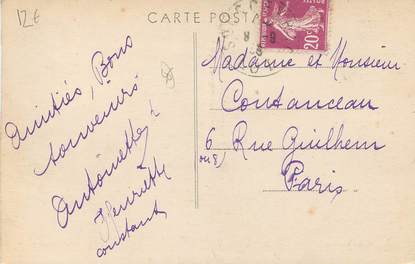 12€
CARTE POSTA
20c
Amitiés, Bons
souvenirs
Antoinette
Henriette
constant
Madame et Monsieur
Coutanceau
6 Rue Guilhem
Paris